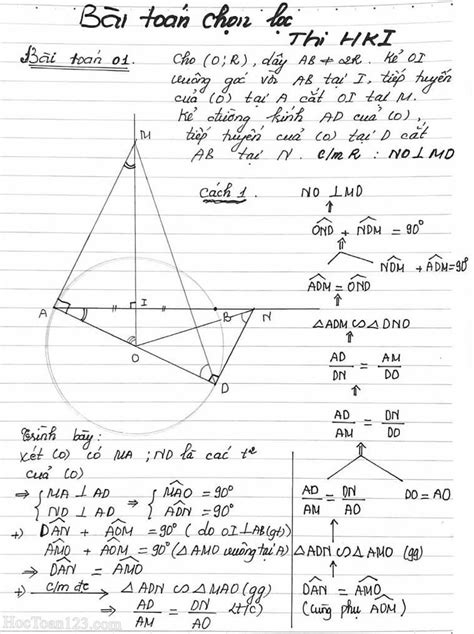 Bài toán chọn lọc
Thi HKI
Bài toán 01. Cho (O;R), dây AB ≠ 2R. Kẻ OI
vuông góc với AB tại I, tiếp tuyến
của (O) tại A cắt OI tại M.
Kẻ đường kính AD của (O),
tiếp tuyến của (O) tại D cắt
AB tại N. C/m R : NO ⊥ MD
Cách 1.
NO ⊥ MD
⇑
OND + NDM = 90°
NDM + ADM = 90°
ADM = OND
⇑
△ADM ∽ △DNO
⇑
AD/DN = AM/DO
⇑
AD/AM = DN/DO
⇑
AD/AM = DN/AO
DO = AO
⇑
△ADN ∽ △AMO (gg)
⇑
DAN = AMO
(cùng phụ AOM)
M
A
I
B
N
O
D
Trình bày:
Xét (O) có MA ; ND là các t²
của (O)
⇒ { MA ⊥ AD ⇒ { MAO = 90°
ND ⊥ AD ADN = 90°
+) DAN + AOM = 90° (do OI ⊥ AB (gt))
AMO + AOM = 90° (△AMO vuông tại A)
⇒ DAN = AMO
+) c/m đc △ADN ∽ △MAO (gg)
⇒ AD/AM = DN/AO (t/c)
HocToan123.com